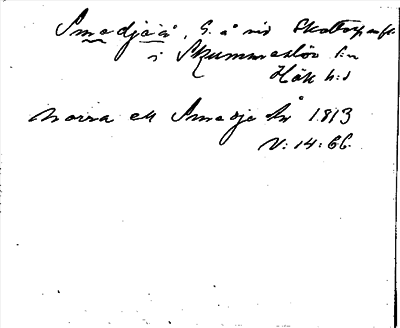 Smedjeå, S. å vid Skottorps
i Skummeslöv sn
Hök hd
Norra ell Smedje Å 1813
V: 14: 66.